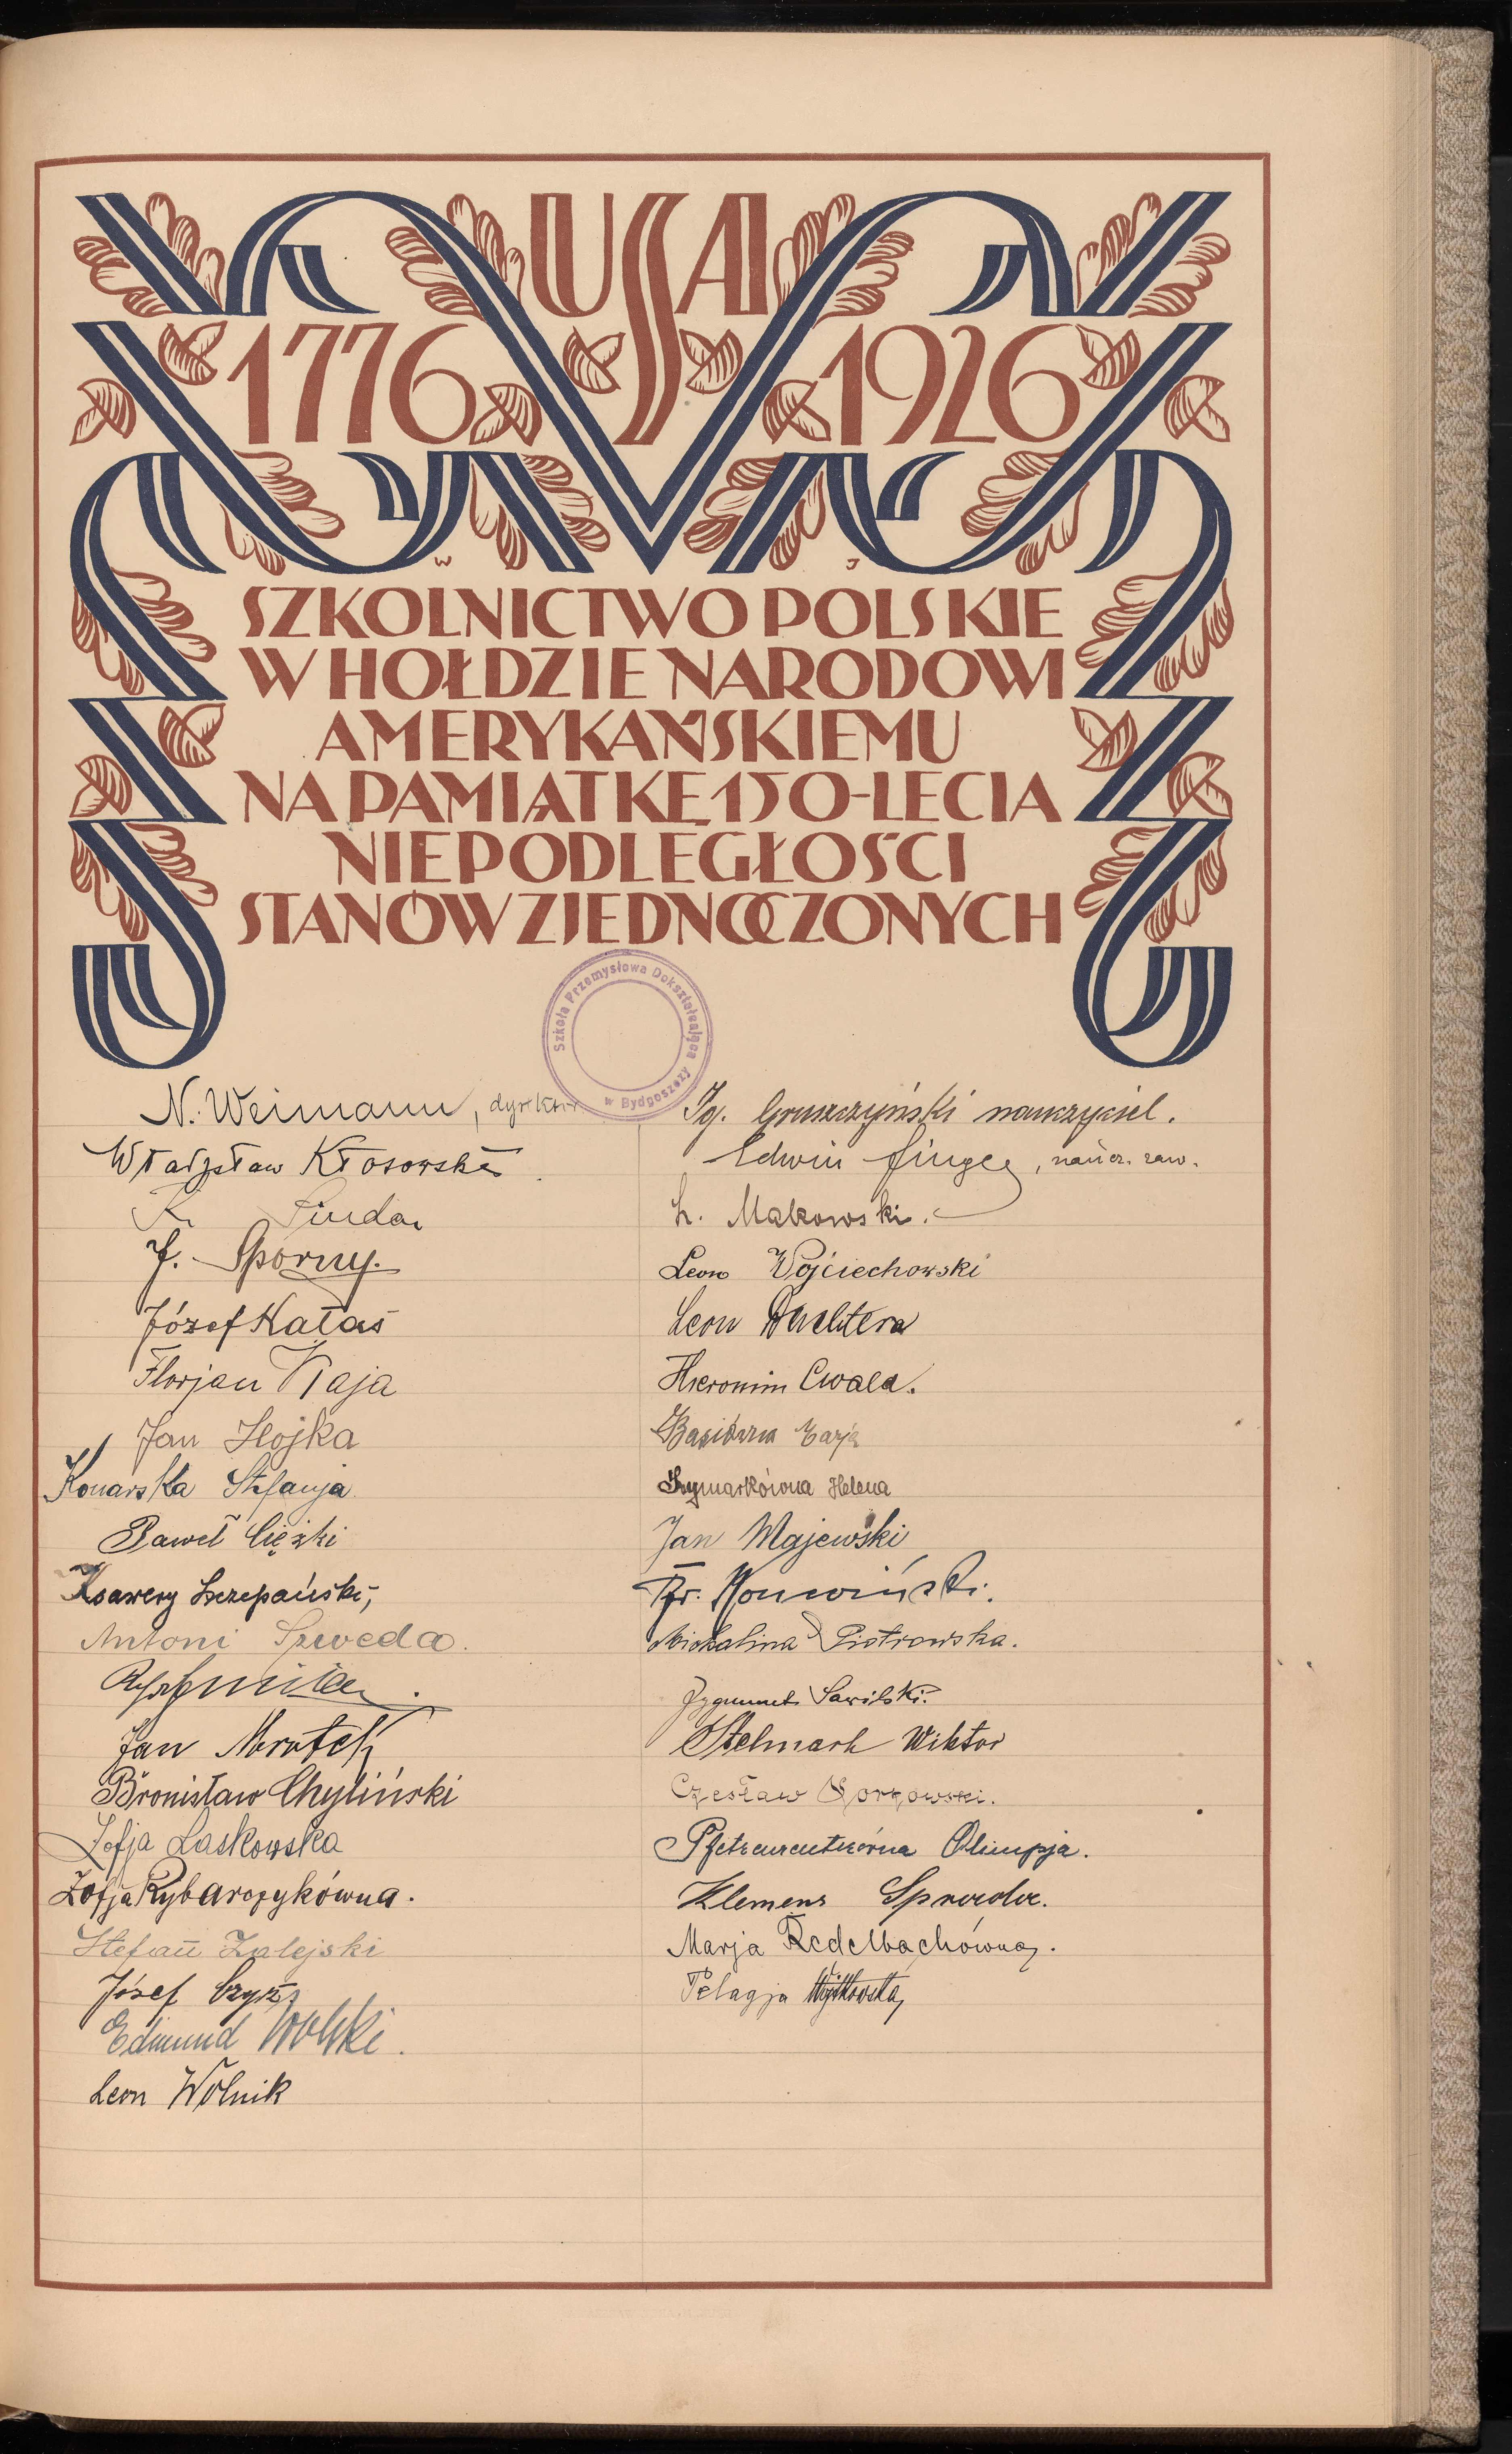 USA
1776 1926
W J
SZKOLNICTWO POLSKIE
W HOŁDZIE NARODOWI
AMERYKAŃSKIEMU
NA PAMIĄTKĘ 150-LECIA
NIEPODLEGŁOŚCI
STANÓW ZJEDNOCZONYCH
Szkoła Przemysłowa Dokształcająca
w Bydgoszczy
N. Weimann, dyrektor
Władysław Kłosowski
J. Sporny.
Józef Kałas
Florjan Kaja
Jan Hojka
Konarska Stefanja
Paweł Ciężki
Ksawery Szczepański,
Antoni Szweda.
Jan Mrotek
Bronisław Chyliński
Zofja Laskowska
Zofja Rybarczykówna.
Stefan Zalejski
Józef Czyż
Edmund Wolski.
Leon Wolnik
Ig. Gruszczyński nauczyciel.
Edwin , naucz. zaw.
L. Makowski.
Leon Wojciechowski
Leon Wachtera
Hieronim Cwala.
Szymarkówna Helena
Jan Majewski
Fr.
Michalina Piotrowska.
Zygmunt Sawilski.
Stelmach Wiktor
Czesław
Olimpja.
Klemens
Marja Redelbachówna.
Pelagja Wojtkowska